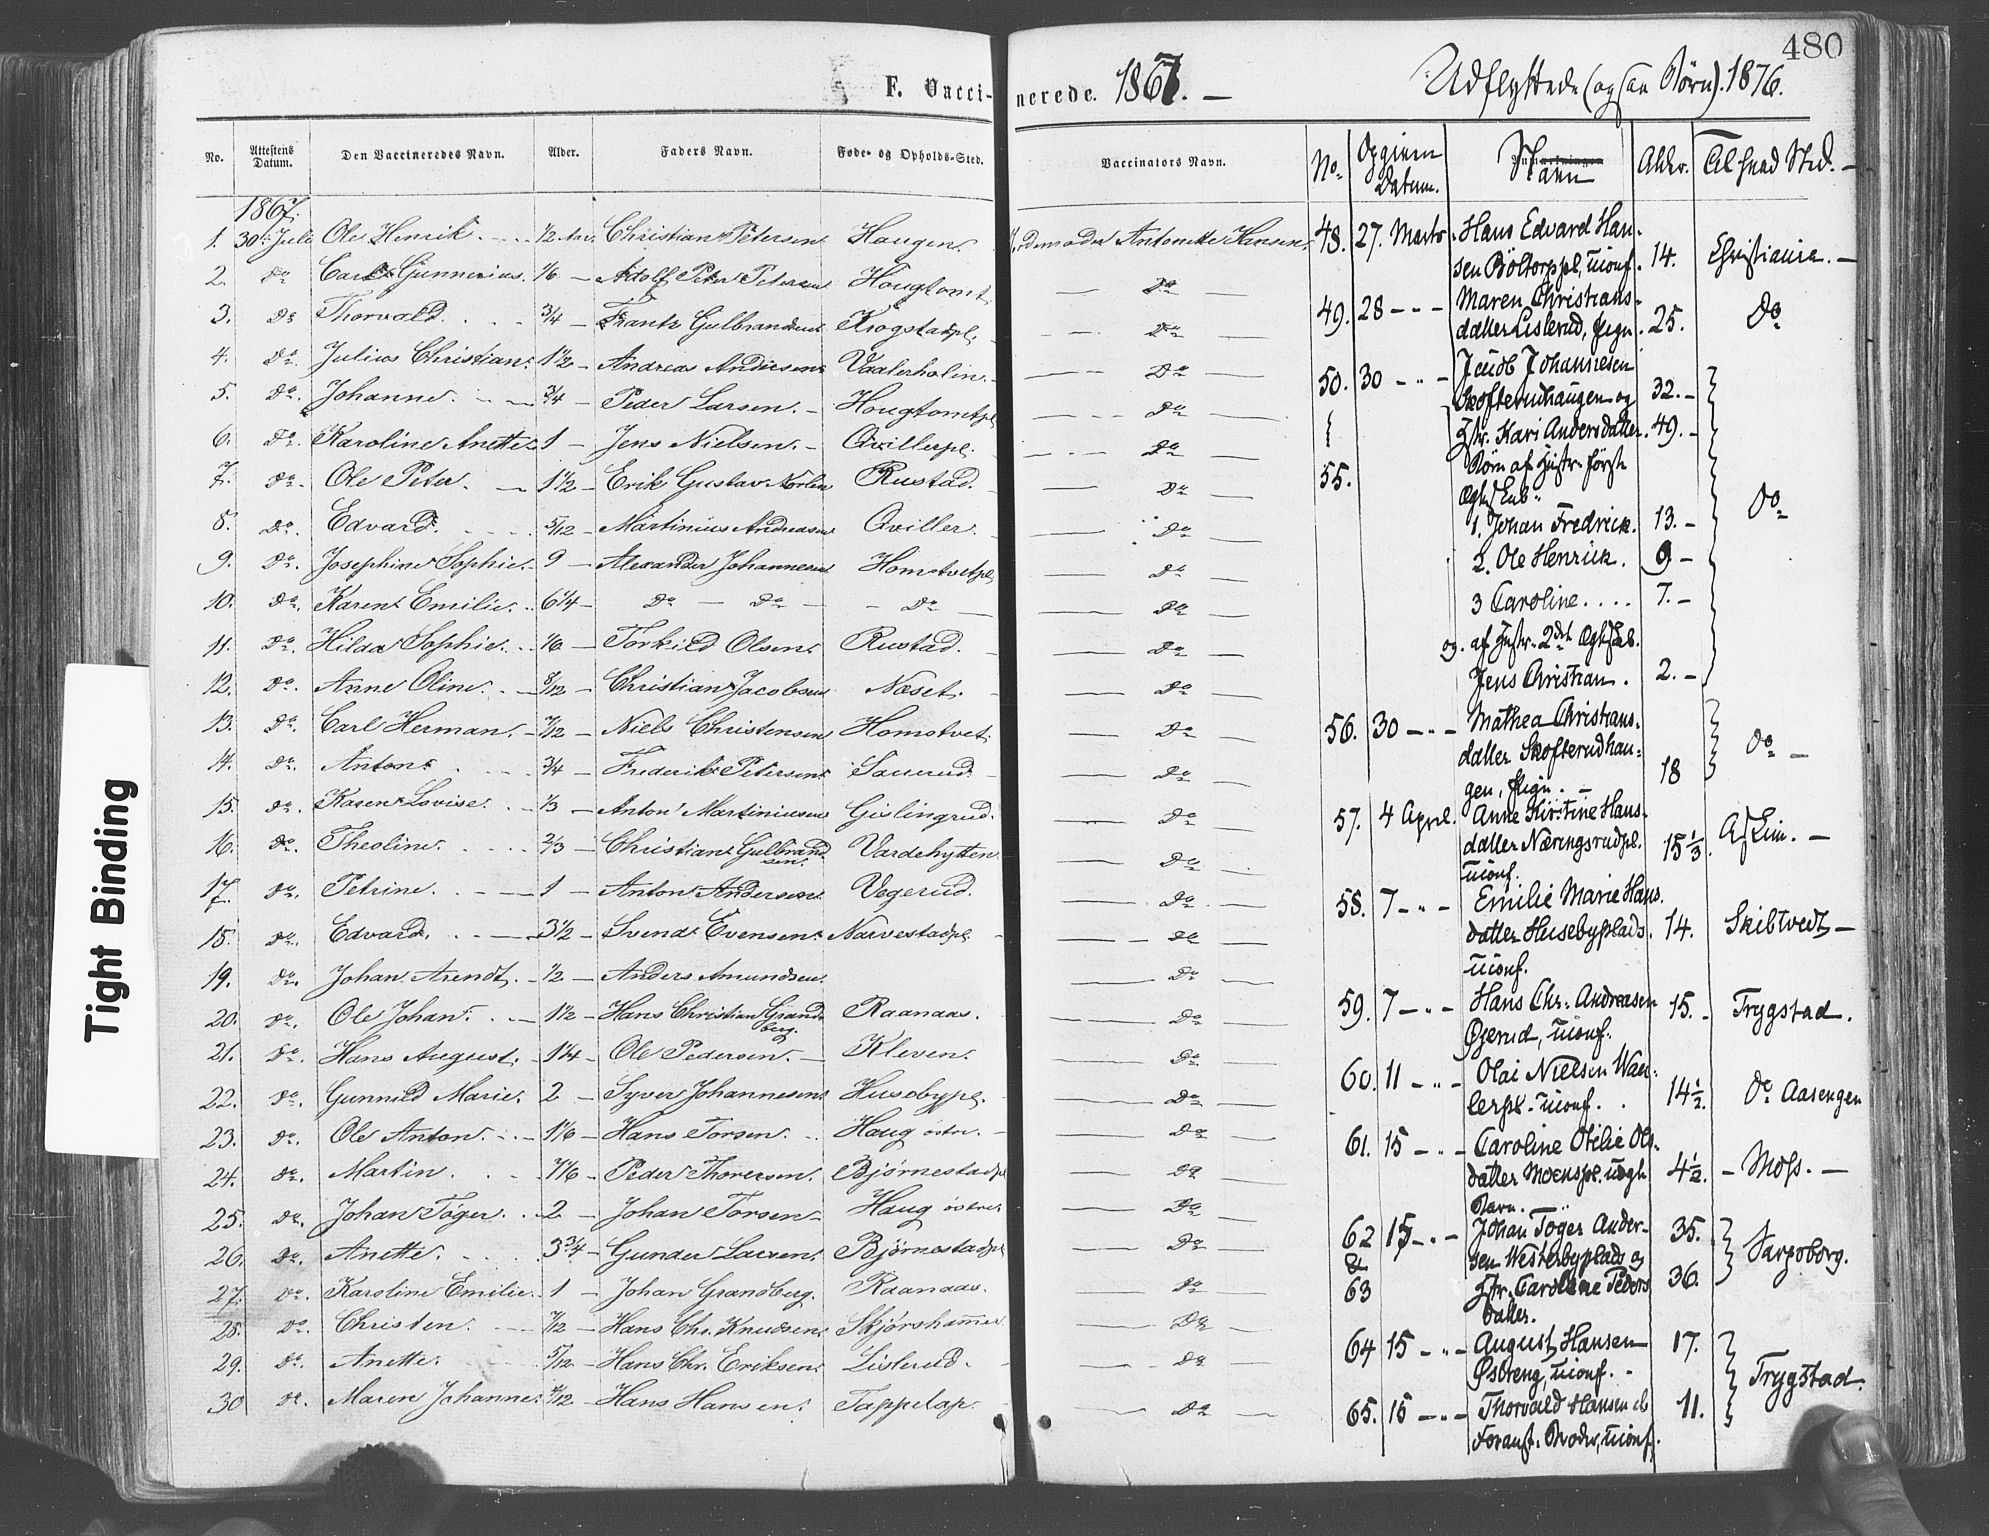 480
F. Vacci-
nerede. 1867. —
Udflyttede (ogsaa Børn) 1876.
No. Attestens Datum. Den Vaccineredes Navn. Alder. Faders Navn. Føde- og Opholds-Sted.
Vaccinators Navn.
No. Datum. Navn Alder. Til hvad Sted. —
1867.
1. 30te Juli Ole Henrik. 1/2 Aar. Christian Petersen Haugen. Jordemoder Antonette Hansen.
2. Do Carl Gunnerius. 1/6 — Adolf Peter Petersen Hougtomt Do
3. Do Thorvald. 3/4 — Frantz Gulbrandsen Krogstadpl. Do
4. Do Julius Christian. 1 1/2 — Andreas Andersen Vaalerholin. Do
5. Do. Johanne. 3/4 — Peder Larsen. Hougtomtpl Do
6. Do. Karoline Anette 1 — Jens Nielsen. Qvillerpl. Do
7. Do. Ole Peter. 1 1/2 — Erik Gustav Norlin Rustad. Do
8. Do. Edvard. 5/12 — Martinius Andreasen Qviller. Do
9. Do. Josephine Sophie. 9 — Alexander Johannesen Homstvetpl. Do
10. Do. Karen Emilie. 6 1/4 — Do — Do — Do — Do
11. Do. Hilda Sophie. 1/6 — Torkild Olsen. Rustad. Do
12. Do. Anne Oline. 8/12 — Christian Jacobsen Næset. Do
13. Do. Carl Herman. 7/12 — Niels Christensen Homstvet. Do
14. Do. Anton. 3/4 — Frederik Petersen Sauerud. Do
15. Do. Karen Lovise. 1/3 — Anton Martiniusen Gislingrud. Do
16. Do. Theoline. 2/3 — Christian Gulbrand
sen. Vardehytten. Do
17. Do. Petrine. 1 — Anton Andersen. Vegerud. Do
18. Do. Edvard. 3 1/2 — Svend Evensen. Narvestadpl. Do
19. Do. Johan Arendt. 1/2 — Anders Amundsen Do
20. Do. Ole Johan. 1 1/2 — Hans Christian Grand
berg. Raanaas. Do
21. Do. Hans August. 1 1/4 — Ole Pedersen. Kleven. Do
22. Do. Gunnild Marie. 2 — Syver Johannesen. Husebypl. Do
23. Do. Ole Anton. 1 1/6 — Hans Torsen. Haug østre. Do
24. Do. Martin. 7/6 — Peder Thoresen. Bjørnestadpl Do
25. Do. Johan Tøger. 2 — Johan Torsen Haug østre. Do
26. Do. Anette. 3 3/4 — Gunder Larsen. Bjørnestadpl Do
27. Do. Karoline Emilie. 1 — Johan Grandberg. Raanaas. Do
28. Do. Christen. 7/12 — Hans Chr. Knudsen. Skjørshammer Do
29. Do. Anette. 5/12 — Hans Chr. Eriksen. Lislerud. Do
30 Do. Maren Johanne. Hans Hansen. Tappelap. Do
48. 27. Marts. Hans Edvard Han-
sen Böltorppl, uconf. 14. Christiania. —
49. 28 — " — Maren Christians-
datter Lislerud, Pige. 25. Do
50. 30 — " — Johannesen
Skofterudhaugen og 32. —
Hstr. Kari Andersdatter. 49. —
55. Børn af Hustr. første
1. Johan Fredrick. 13. — Do
2. Ole Henrick. 9 —
3 Caroline.... 7. —
og. af Hustr. 2det
Jens Christian. 2. —
56. 30 — " — Mathea Christians-
datter Skofterudhau-
gen, Pige. — 18 Do —
57. 4 April. Anne Kirstine Hans-
datter Næringsrudpl.
uconf. 15 1/3. Askim. —
58. 7 — " — Emilie Marie Hans
datter Husebyplads. 14. Skibtvedt —
uconf.
59. 7 — " — Hans Chr. Andreasen 15. Trygstad.
Øgerud, uconf.
60. 11 — " — Olai Nielsen Waa-
lerpl. uconf. 14 1/2. Do Aasengen
61. 15 — " — Caroline Otilie Ols-
datter Moenspl. uægte 4 1/2. — Moss. —
Barn.
62 15 — " — Johan Tøger Ander- 35.
& sen Westerbyplads og Sarpsborg.
63 Hstr. Caroline Peders 36.
datter.
64 15 — " — August Hansen 17.
Østreng, uconf. Trygstad.
65. 15 — " — Thorvald Hansen 11.
Foranst. Broder, uconf.
Tight Binding